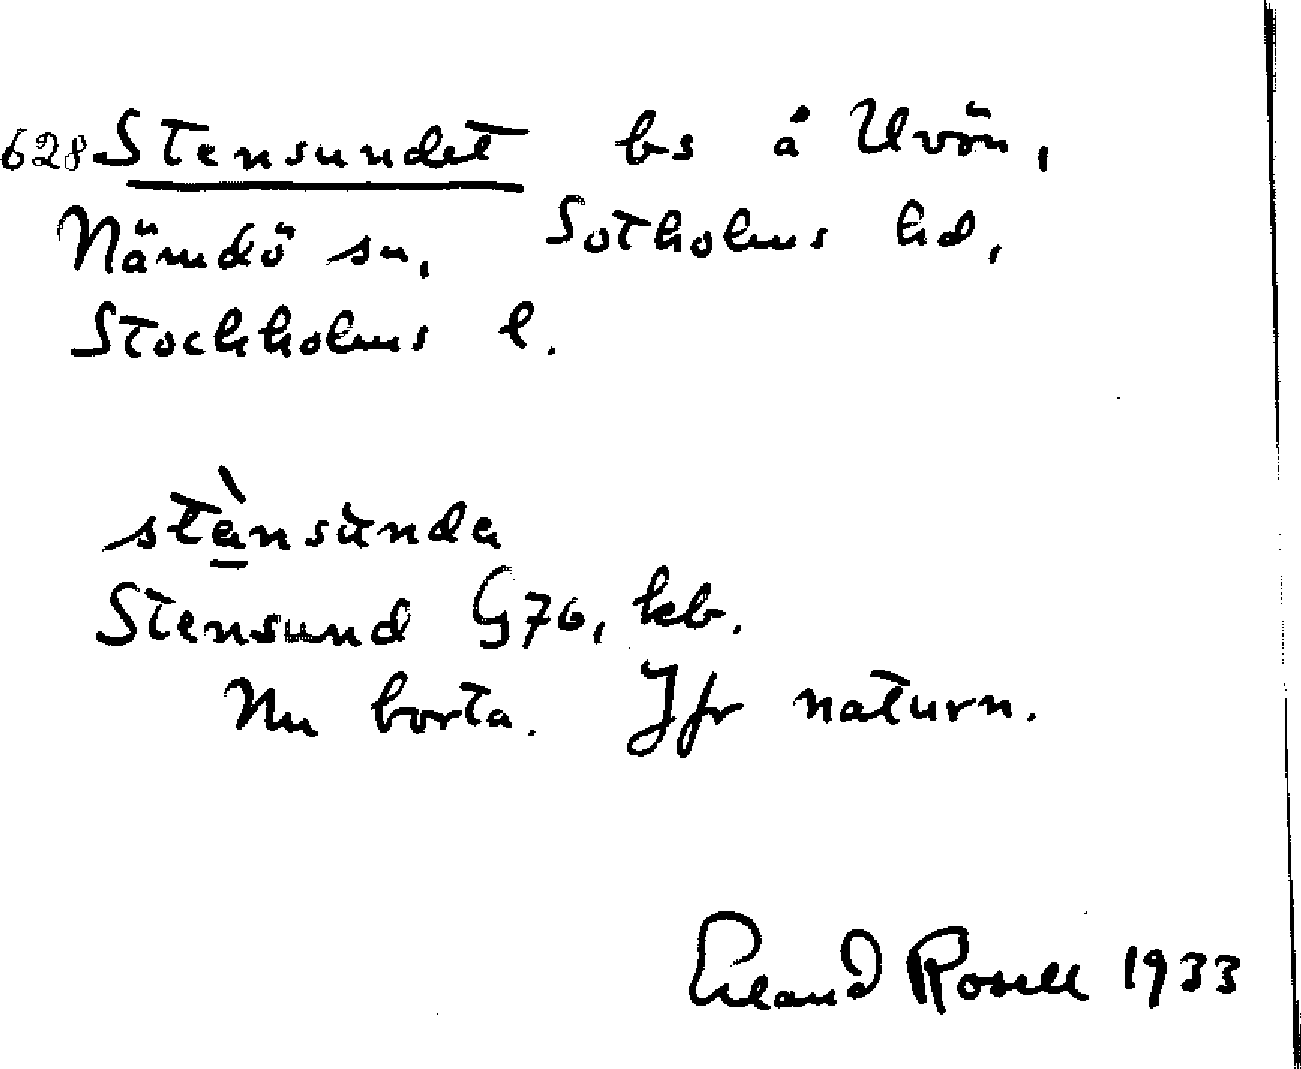 628 Stensundet bs å Uvön,
Nämdö sn, Sotholms hd,
Stockholms l.
stè̱nsùnda
Stensund G76, kb.
Nu borta. Jfr naturn.
Erland Rosell 1933